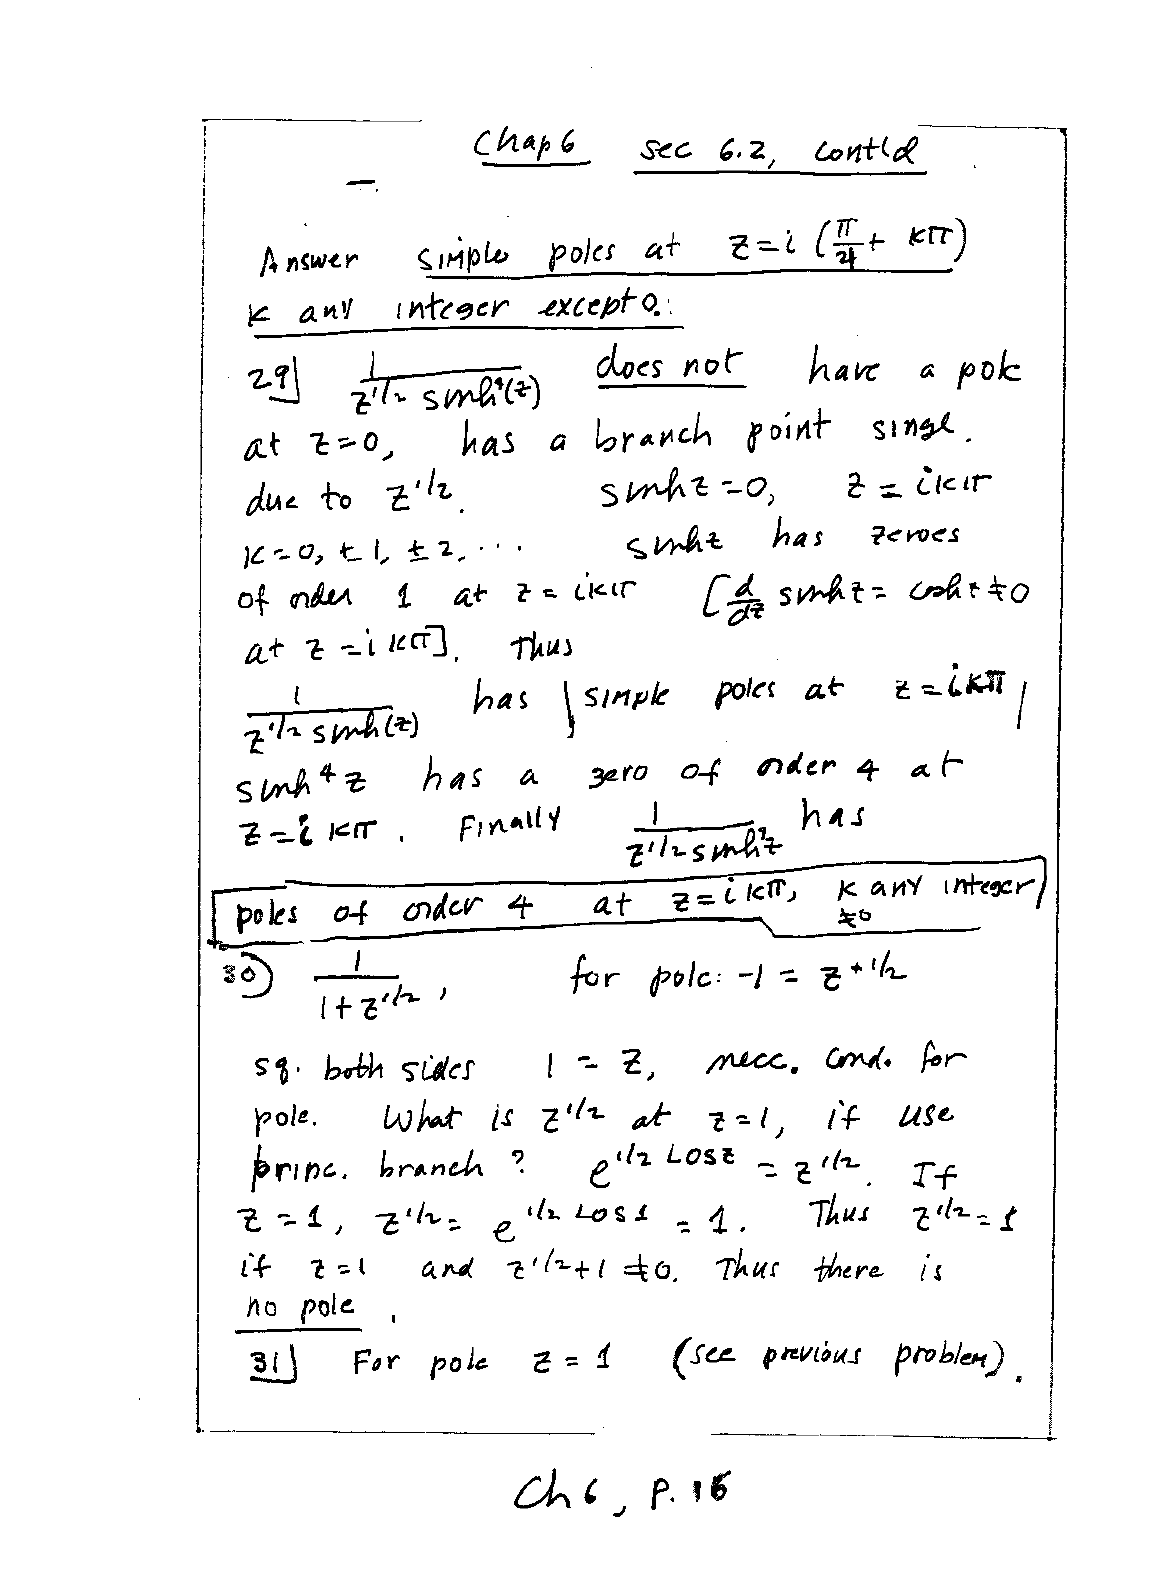 Chap 6 sec 6.2, cont'd
Answer simple poles at z=i(π/4+ kπ)
k any integer except 0.
29] 1/(z^1/2 sinh^4(z)) does not have a pole
at z=0, has a branch point singl.
due to z^1/2. sinhz=0, z=ikπ
k=0, ±1, ±2, ... sinhz has zeroes
of order 1 at z=ikπ [d/dz sinhz= coshz≠0
at z=ikπ]. Thus
1/(z^1/2 sinh(z)) has simple poles at z=ikπ,
sinh^4 z has a zero of order 4 at
z=ikπ. Finally 1/(z^1/2 sinh^4 z) has
poles of order 4 at z=ikπ, k any integer
≠0
30) 1/(1+z^1/2), for pole: -1 = z^+1/2
sq. both sides 1=z, necc. cond. for
pole. What is z^1/2 at z=1, if use
princ. branch? e^1/2 Log z = z^1/2. If
z=1, z^1/2= e^1/2 Log 1 = 1. Thus z^1/2=1
if z=1 and z^1/2+1≠0. Thus there is
no pole.
31] For pole z=1 (see previous problem).
Ch 6, p. 16